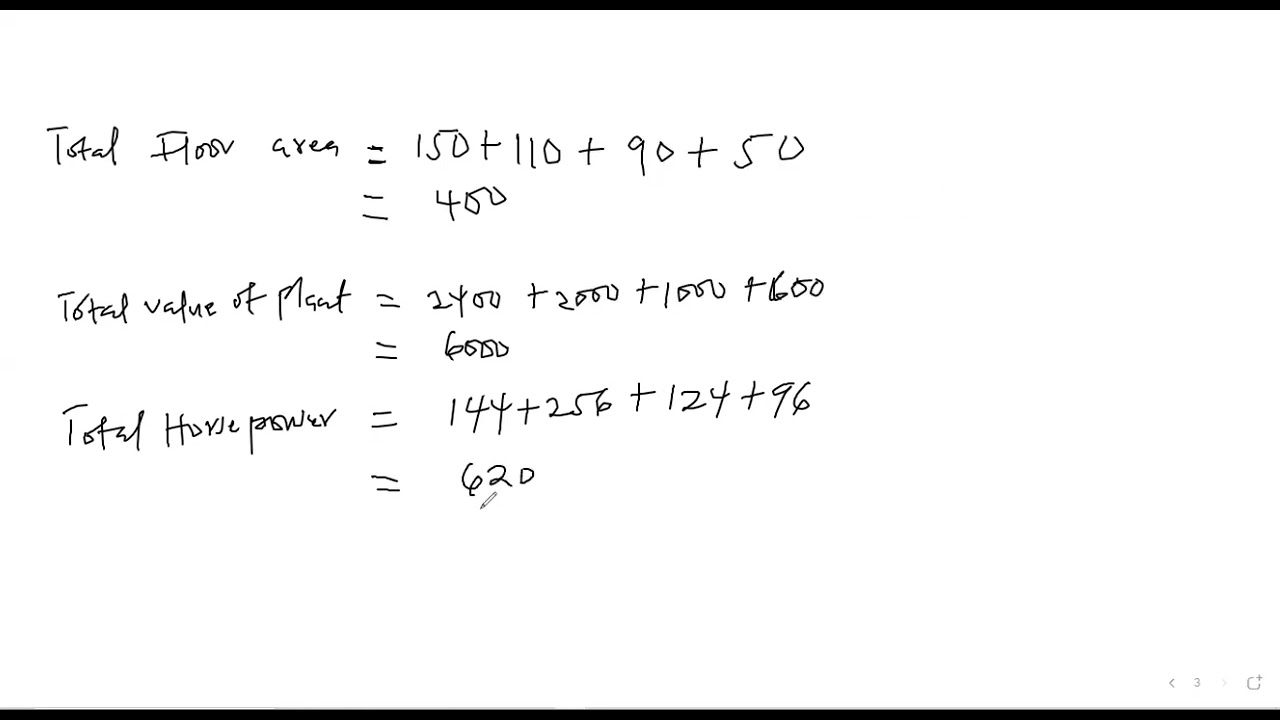 Total Floor area = 150 + 110 + 90 + 50
= 400
Total value of plant = 2400 + 2000 + 1000 + 600
= 6000
Total Horse power = 144 + 256 + 124 + 96
= 620
< 3 >